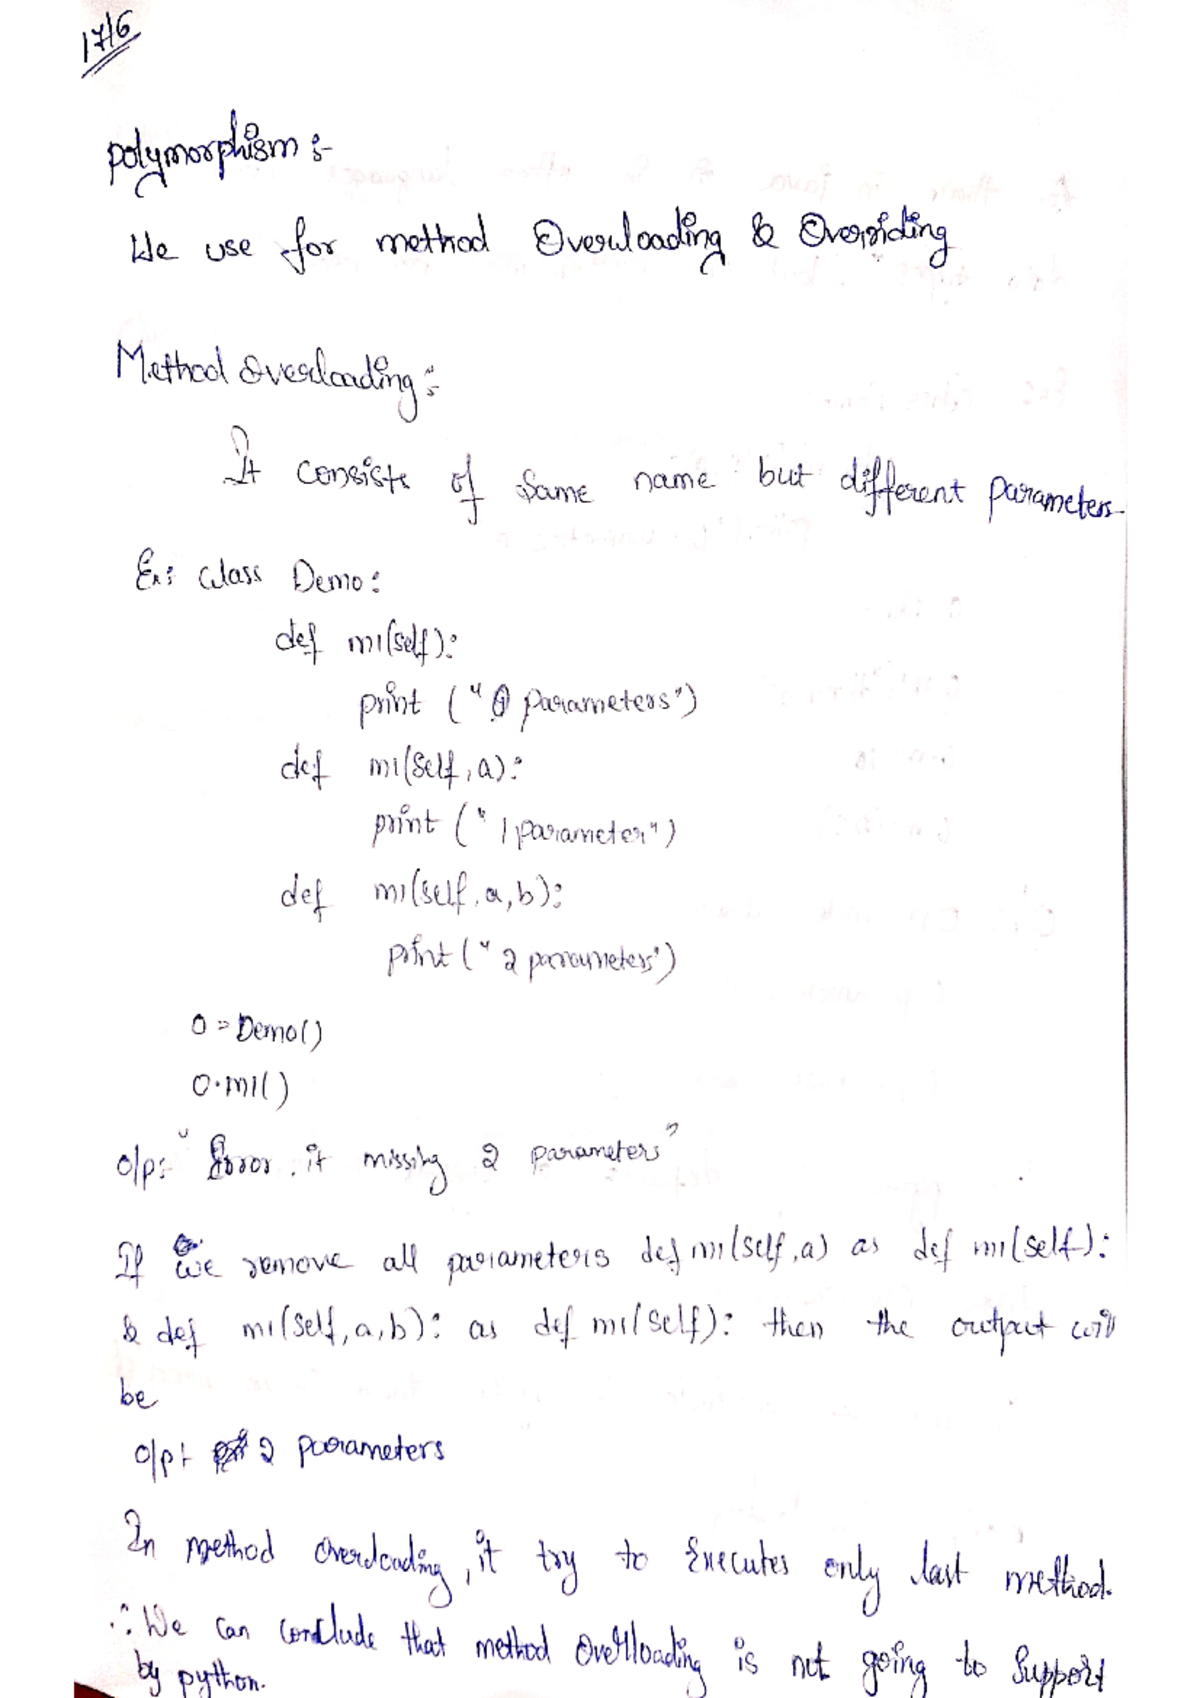 17/6
polymorphism :-
We use for method Overloading & Overriding
Method Overloading :-
It consists of same name but different parameters
Ex: class Demo:
def m1(self):
print ("0 parameters")
def m1(self, a):
print ("1 parameter")
def m1(self, a, b):
print ("2 parameters")
O = Demo()
O.m1()
o/p:- "Error, it missing 2 parameters"
If we remove all parameters def m1(self, a) as def m1(self):
& def m1(self, a, b): as def m1(self): then the output will
be
o/p:- 2 parameters
In method overloading, it try to Executes only last method.
∴ We can conclude that method Overlloading is not going to Support
by python.